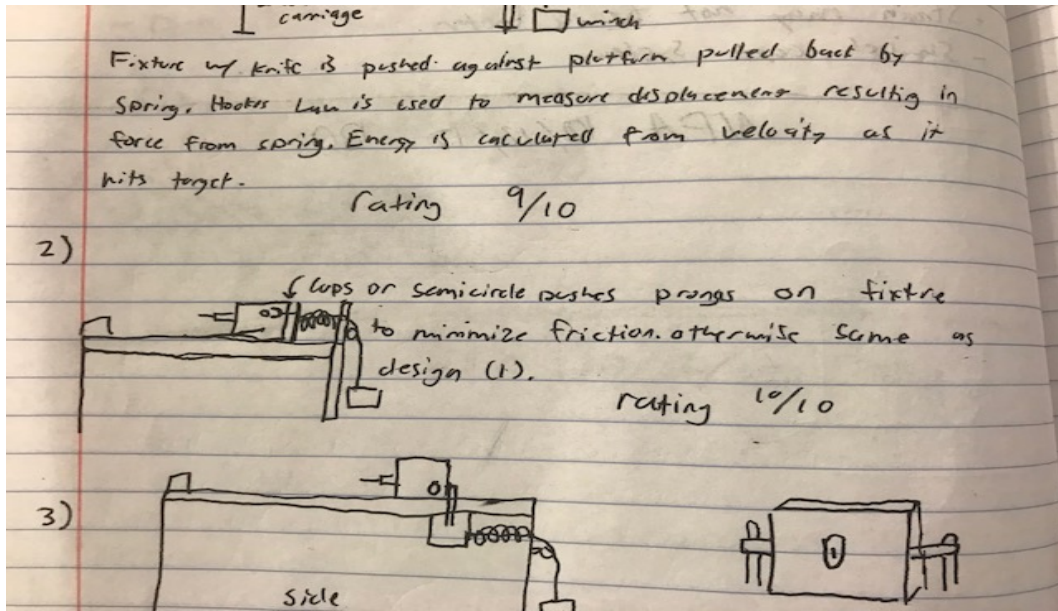 carriage
winch
Fixture w/ knife is pushed against platform pulled back by
spring. Hookes Law is used to measure displacement resulting in
force from spring. Energy is calculated from velocity as it
hits target.
rating 9/10
2)
Cups or semicircle pushes prongs on fixtre
to minimize friction. otherwise same as
design (1).
rating 10/10
3)
side